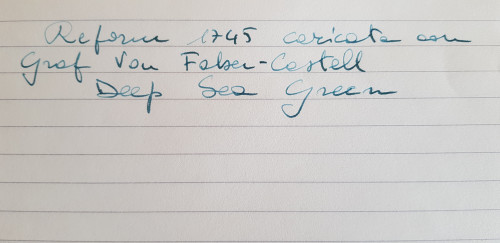 Reform 1745 caricata con
Graf Von Faber-Castell
Deep Sea Green